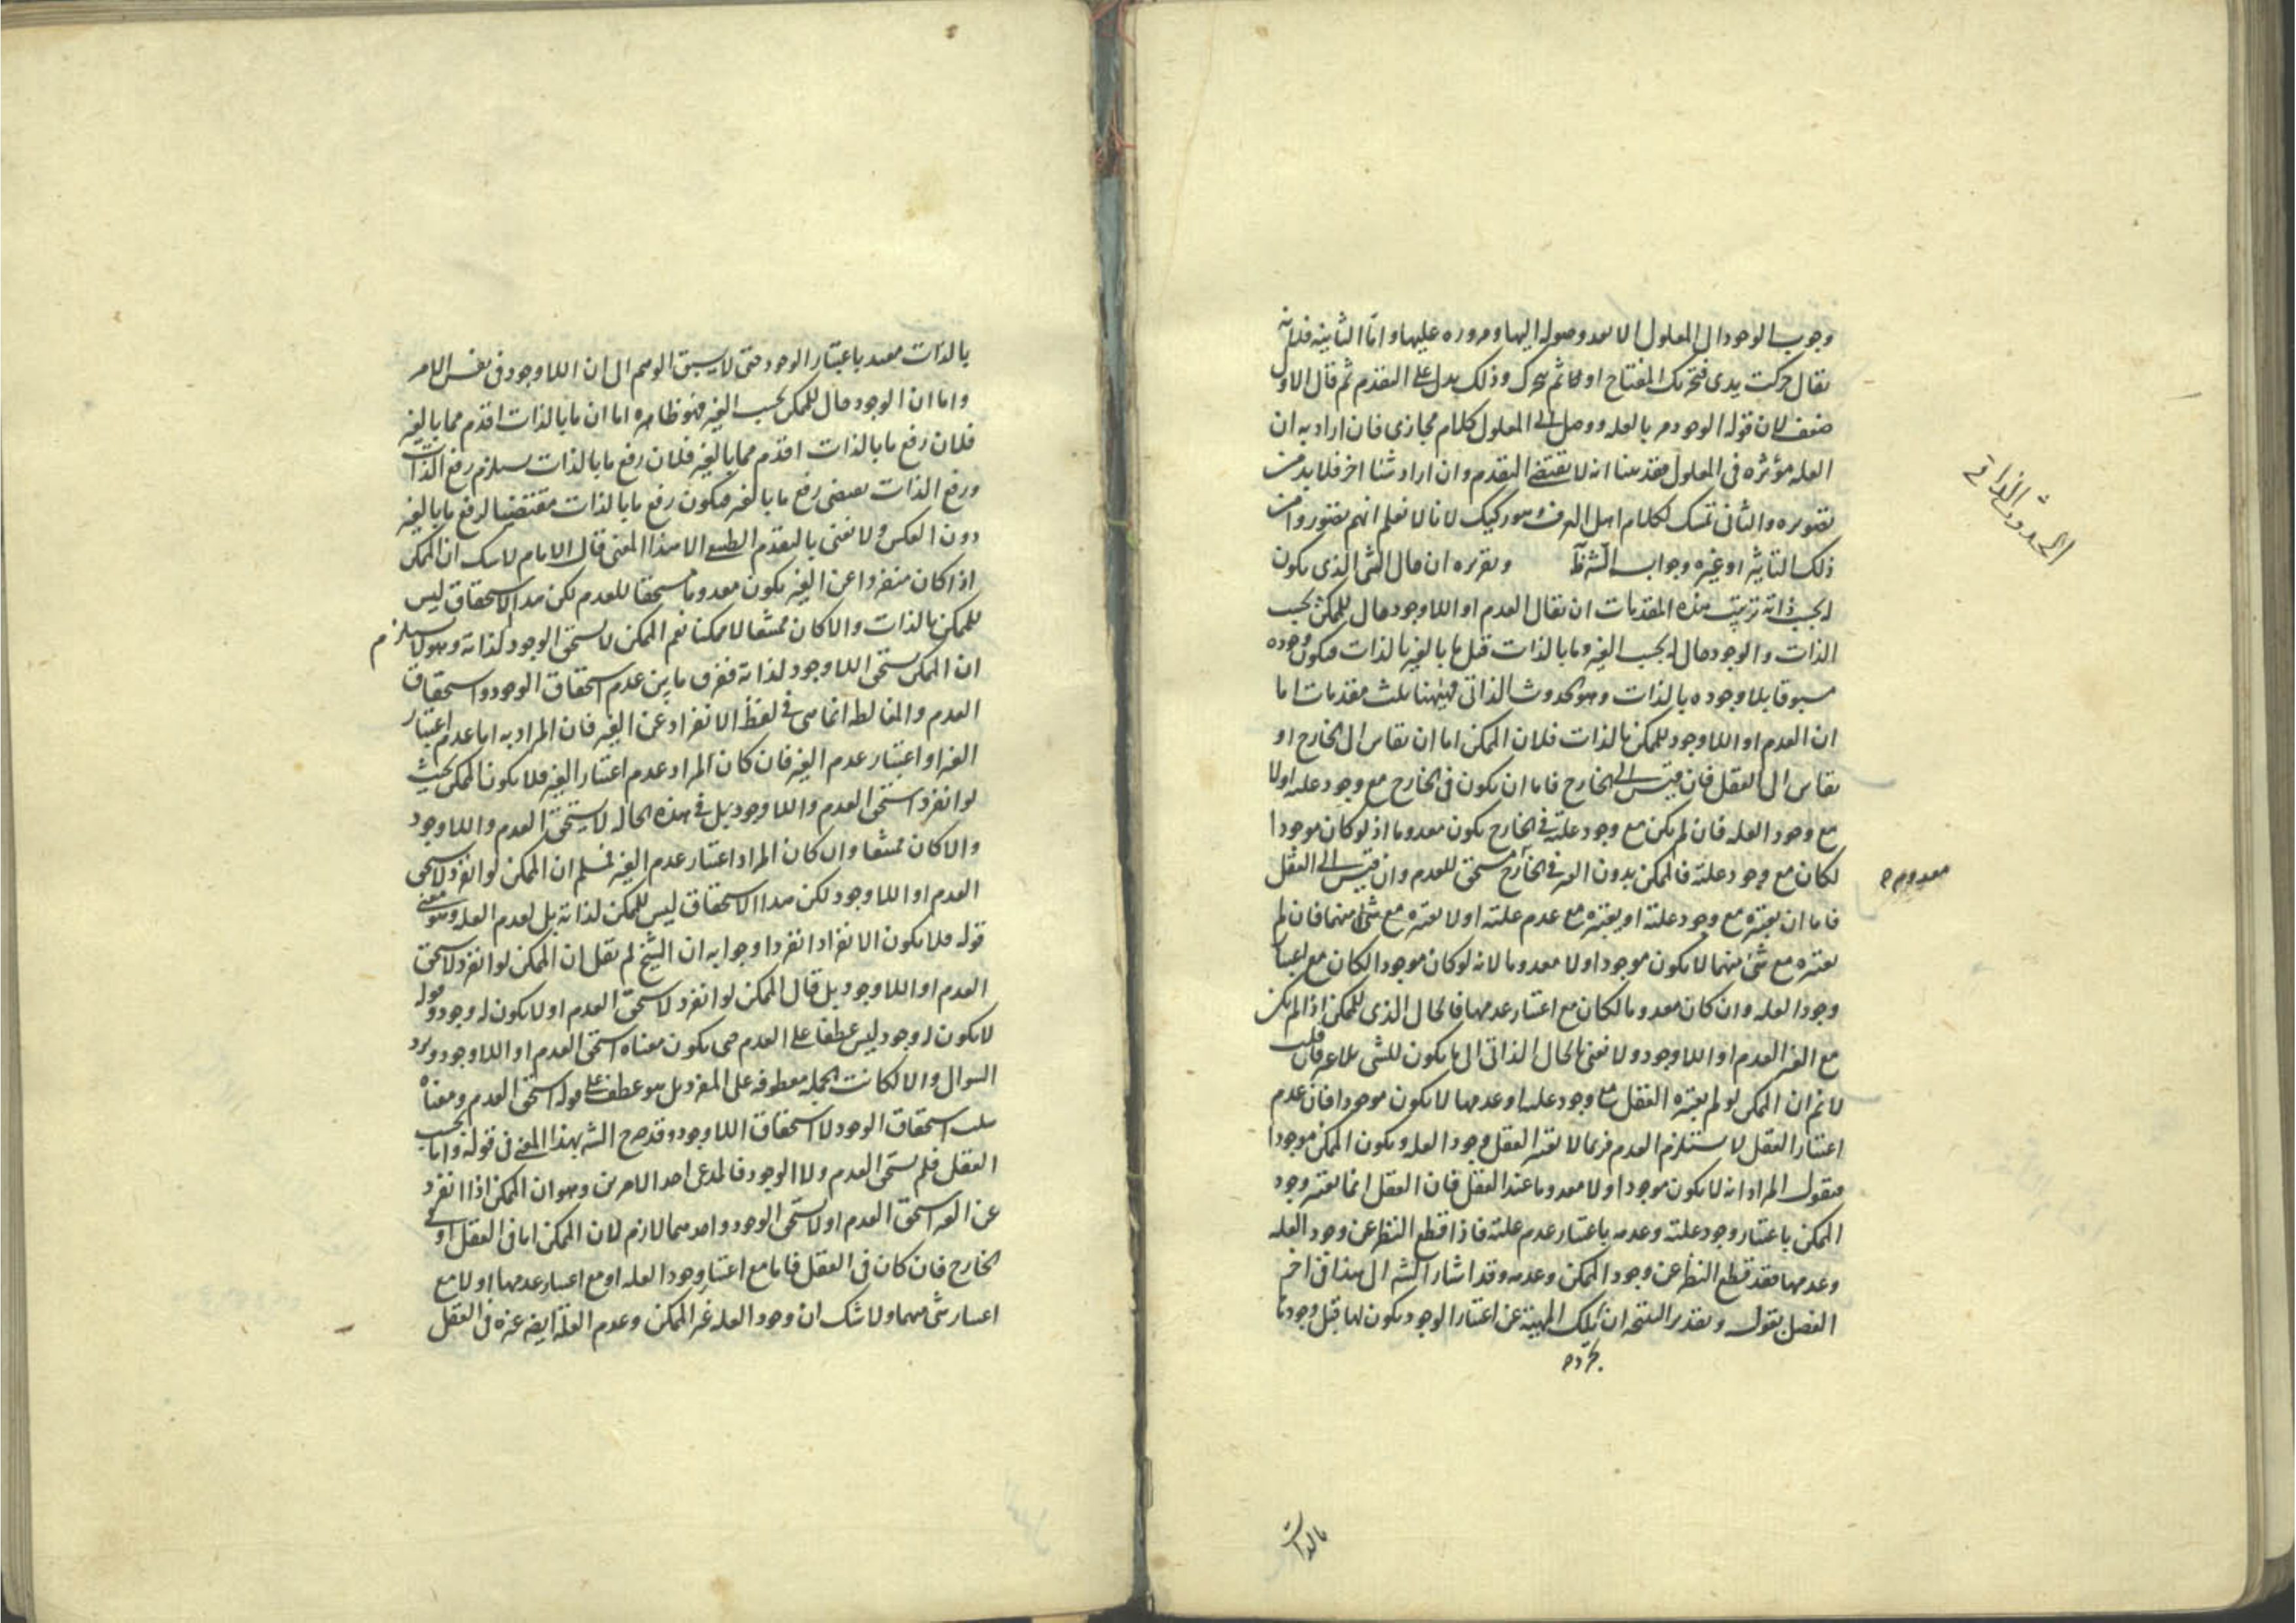 وجوب الوجود الى المعلول الا بعد وصوله اليها ومروره عليها واما الثانية فلانه
يقال حركت يدى فتحرك المفتاح او ثم تحرك وذلك يدل على التقدم ثم قال الاول
ضعيف لان قوله الوجود مر بالعله ووصل الى المعلول كلام مجازى فان اراد به ان
العله مؤثره فى المعلول فقد بينا انه لا يقتضى التقدم وان اراد شيئا اخر فلا بد من
تصويره والثانى تمسك بكلام اهل العرف وهو ركيك لانا لا نعلم انهم يتصوروا من
ذلك التاثير او غيره وجواب الشرظ وتقريره ان حال الشى الذى يكون
له بحسب ذاته ترتيب هذه المقدمات ان يقال العدم او اللاوجود حال للممكن بحسب
الذات والوجود حال له بحسب الغير وما بالذات قبل ما بالغير بالذات فيكون وجوده
مسبوقا بلا وجوده بالذات وهو الحدوث الذاتى فههنا ثلث مقدمات اما
ان العدم او اللاوجود للممكن بالذات فلان الممكن اما ان يقاس الى الخارج او
يقاس الى العقل فان قيس الى الخارج فاما ان يكون فى الخارج مع وجود علته او لا
مع وجود العله فان لم يكن مع وجود علته فى الخارج يكون معدوما اذ لو كان موجودا
لكان مع وجود علته فالممكن بدون الغير فى الخارج مستحق للعدم وان قيس الى العقل
فاما ان يعتبره مع وجود علته او يعتبره مع عدم علته او لا يعتبره مع شئ منهما فان لم
يعتبره مع شئ منهما لا يكون موجودا ولا معدوما لانه لو كان موجودا لكان مع اعتبار
وجود العله وان كان معدوما لكان مع اعتبار عدمها فالحال الذى للممكن اذا لم يكن
مع الغير العدم او اللاوجود ولا نعنى بالحال الذاتى الا ما يكون للشى بلا غير فان قلت
لا نم ان الممكن لو لم يعتبره العقل مع وجود علته او عدمها لا يكون موجودا فان عدم
اعتبار العقل لا يستلزم العدم فربما لا يعتبر العقل وجود العله ويكون الممكن موجودا
فنقول المراد انه لا يكون موجودا ولا معدوما عند العقل فان العقل انما يعتبر وجود
الممكن باعتبار وجود علته وعدمه باعتبار عدم علته فاذا قطع النظر عن وجود العله
وعدمها فقد قطع النظر عن وجود الممكن وعدمه وقد اشار الشه الى هذا فى اخر
الفصل بقوله وتقدير النتيجه ان تلك المهية عن اعتبار الوجود يكون لها قبل وجودها
تجرده
بالذات
الحدوث الذاتى
معدوم ه
بالذات مقيد باعتبار الوجود حتى لا يسبق الوهم الى ان اللاوجود فى نفس الامر
واما ان الوجود حال للممكن بحسب الغير فهو ظاهر واما ان ما بالذات اقدم مما بالغير
فلان رفع ما بالذات اقدم مما بالغير فلان رفع ما بالذات يستلزم رفع الذات
ورفع الذات يقتضى رفع ما بالغير فيكون رفع ما بالذات مقتضيا لرفع ما بالغير
دون العكس ولا نعنى بالتقدم الطبيعى الا هذا المعنى قال الامام لا شك ان الممكن
اذا كان منفردا عن الغير يكون معدوما مستحقا للعدم لكن هذا الاستحقاق ليس
للممكن بالذات والا كان ممتنعا لا ممكنا نعم الممكن لا يستحق الوجود لذاته وهو لا يستلزم
ان الممكن يستحق اللاوجود لذاته ففرق ما بين عدم استحقاق الوجود واستحقاق
العدم والمغالطه انما هى فى لفظ الانفراد عن الغير فان المراد به اما عدم اعتبار
الغير او اعتبار عدم الغير فان كان المراد عدم اعتبار الغير فلا يكون الممكن بحيث
لو انفرد استحق العدم واللاوجود بل فى هذه الحاله لا يستحق العدم واللاوجود
والا كان ممتنعا وان كان المراد اعتبار عدم الغير فسلم ان الممكن لو انفرد لاستحق
العدم او اللاوجود لكن هذا الاستحقاق ليس للممكن لذاته بل لعدم العله وهو معنى
قوله فلا يكون الانفراد انفرادا وجوابه ان الشيخ لم يقل ان الممكن لو انفرد لاستحق
العدم او اللاوجود بل قال الممكن لو انفرد لاستحق العدم او لا يكون له وجود وقوله
لا يكون له وجود ليس عطفا على العدم حتى يكون معناه استحق العدم او اللاوجود ويرد
السوال والا لكانت الجمله معطوفه على المفرد بل هو عطف على قوله استحق العدم ومعناه
سلب استحقاق الوجود لا استحقاق اللاوجود وقد صرح الشه بهذا المعنى فى قوله واما بحسب
العقل فلم يستحق العدم ولا الوجود فالمدعى احد الامرين وهو ان الممكن اذا انفرد
عن الغير استحق العدم او لا يستحق الوجود واحدهما لازم لان الممكن اما فى العقل او فى
الخارج فان كان فى العقل فاما مع اعتبار وجود العله او مع اعتبار عدمها او لا مع
اعتبار شى منهما ولا شك ان وجود العله غير الممكن وعدم العله ايضا غيره فى العقل